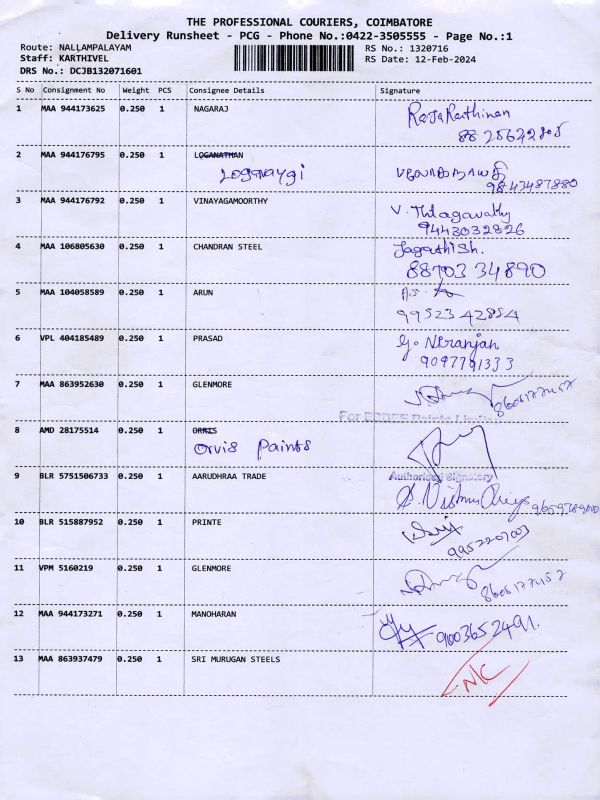 THE PROFESSIONAL COURIERS, COIMBATORE
Delivery Runsheet - PCG - Phone No.:0422-3505555 - Page No.:1
Route: NALLAMPALAYAM RS No.: 1320716
Staff: KARTHIVEL RS Date: 12-Feb-2024
DRS No.: DCJB132071601
S No Consignment No Weight PCS Consignee Details Signature
1 MAA 944173625 0.250 1 NAGARAJ
88 25642805
2 MAA 944176795 0.250 1 LOGANATHAN
9843487880
3 MAA 944176792 0.250 1 VINAYAGAMOORTHY V. Thilagavathy
9443032826
4 MAA 106805630 0.250 1 CHANDRAN STEEL Jagathish.
88703 34890
5 MAA 104058589 0.250 1 ARUN
99523 42854
6 VPL 404185489 0.250 1 PRASAD G. Niranjan
9097791333
7 MAA 863952630 0.250 1 GLENMORE
8606177157
Paints Limited
8 AMD 28175514 0.250 1 ORRIS
Orvis Paints
Authorised Signatory
9 BLR 5751506733 0.250 1 AARUDHRAA TRADE
10 BLR 515887952 0.250 1 PRINTE
9952207003
11 VPM 5160219 0.250 1 GLENMORE
8606177157
12 MAA 944173271 0.250 1 MANOHARAN 9003652491.
13 MAA 863937479 0.250 1 SRI MURUGAN STEELS N/C